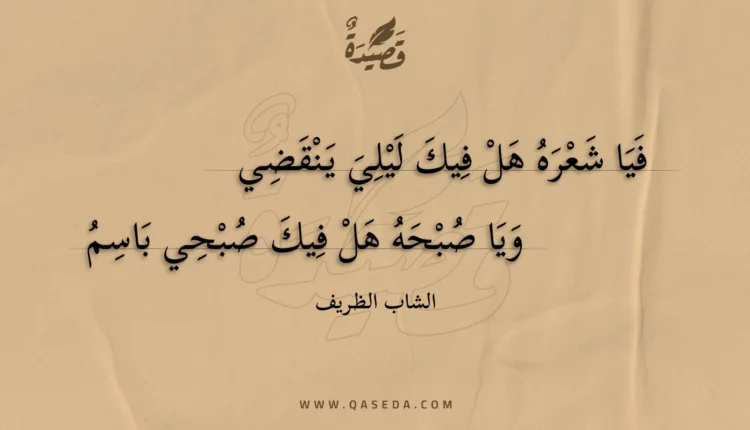 قَصِيدَةٌ
فَيَا شَعْرَهُ هَلْ فِيكَ لَيْلِيَ يَنْقَضِي
وَيَا صُبْحَهُ هَلْ فِيكَ صُبْحِي بَاسِمُ
الشاب الظريف
WWW.QASEDA.COM